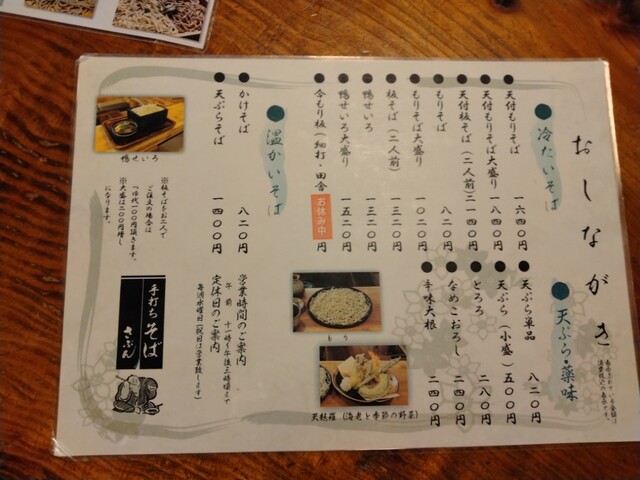 おしながき
冷たいそば
天付もりそば 一六四〇円
天付もりそば大盛り 一八四〇円
天付板そば(二人前) 二一四〇円
もりそば 八二〇円
もりそば大盛り 一〇二〇円
板そば(二人前) 一三二〇円
鴨せいろ 一三二〇円
鴨せいろ大盛り 一五二〇円
合もり板(細打・田舎 お休み中 円
温かいそば
かけそば 八二〇円
天ぷらそば 一四〇〇円
鴨せいろ
※板そばをお二人で
ご注文の場合は
一〇〇円頂きます。
※大盛は二〇〇円増し
になります。
天ぷら・薬味
天ぷら単品 八二〇円
天ぷら(小盛) 五〇〇円
とろろ 二八〇円
なめこおろし 二四〇円
辛味大根 二四〇円
もり
天麩羅(海老と季節の野菜)
営業時間のご案内
午前 十一時〜午後三時頃まで
定休日のご案内
毎週水曜日(祝日は営業致します)
手打ちそば
さぶん